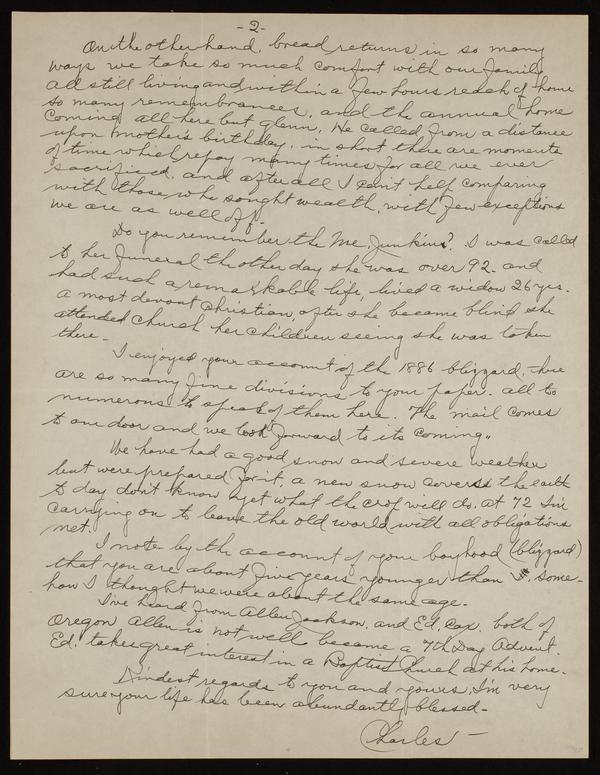 -2-
On the other hand, bread returns in so many
ways we take so much comfort with our family
all still living and within a few hours reach of home
so many remembrances, and the annual home
coming all here but Glenn, He called from a distance
upon Mother's birthday, in short there are moments
of time which repay many times for all we ever
sacrificed, and after all I can't help comparing
with those who sought wealth, with few exceptions
we are as well off.
Do you remember the Mc Junkins? I was called
to her funeral the other day she was over 92 and
had such a remarkable life, lived a widow 26 yrs.
a most devout Christian, after she became blind she
attended Church her children seeing she was taken
there -
I enjoyed your account of the 1886 blizzard, there
are so many fine divisions to your paper. all to
numerous to speak of them here. The mail comes
to our door and we look forward to its coming.
We have had a good snow and severe weather
but were prepared for it, a new snow covers the earth
to day don't know yet what the crop will do. at 72 I'm
carrying on to leave the old world with all obligations
met.
I note by the account of your boyhood (blizzard)
that you are about five years younger than I. some-
how I thought we were about the same age.
I've heard from Allen Jackson, and Ed. Cox. both of
Oregon Allen is not well became a 7th Day Advent.
Ed. takes great interest in a Baptist Church at his home.
Kindest regards to you and yours, I'm very
sure your life has been abundantly blessed -
Charles -